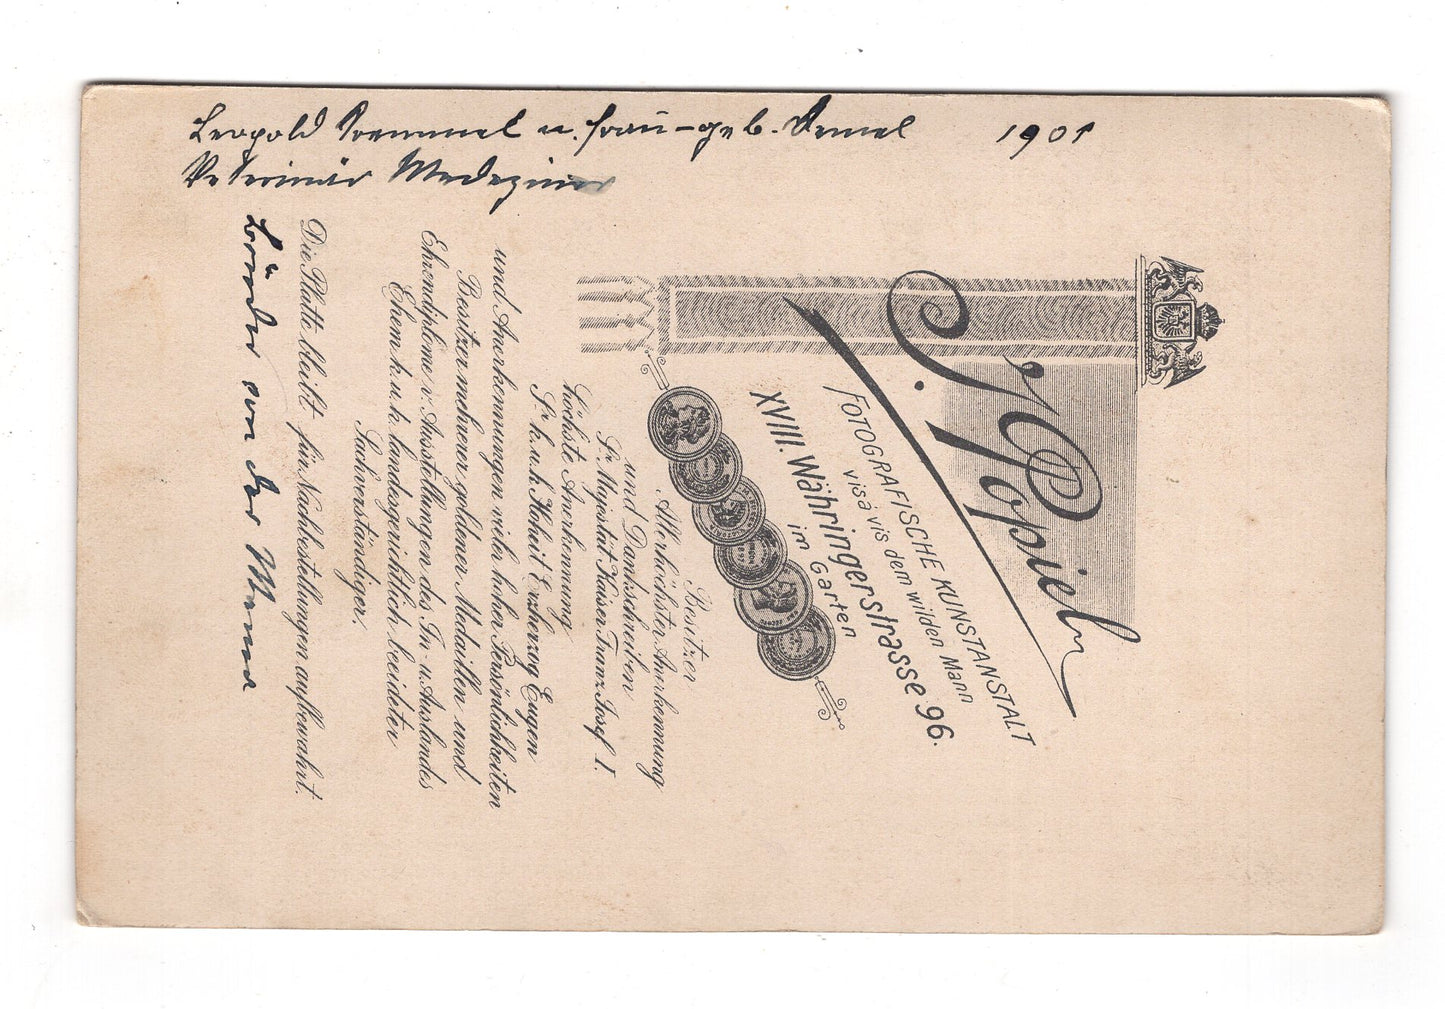 Leopold u. Frau - geb. Demel 1901
Veterinär Mediziner
Brüder von der Mama
J. Popiel
FOTOGRAFISCHE KUNSTANSTALT
visá vis dem wilden Mann
XVIII. Währingerstrasse 96.
im Garten
Besitzer
Allerhöchster Anerkennung
und Dankschreiben
Sr. Majestät Kaiser Franz Josef I.
höchste Anerkennung
Sr. k. u. k. Hoheit Erzherzog Eugen
und Anerkennungen vieler hoher Persönlichkeiten
Besitzer mehrerer goldener Medaillen und
Ehrendiplome v. Ausstellungen des In- u. Auslandes
Ehem. k. u. k. landesgerichtlich beeideter
Sachverständiger.
Die Platte bleibt für Nachbestellungen aufbewahrt.